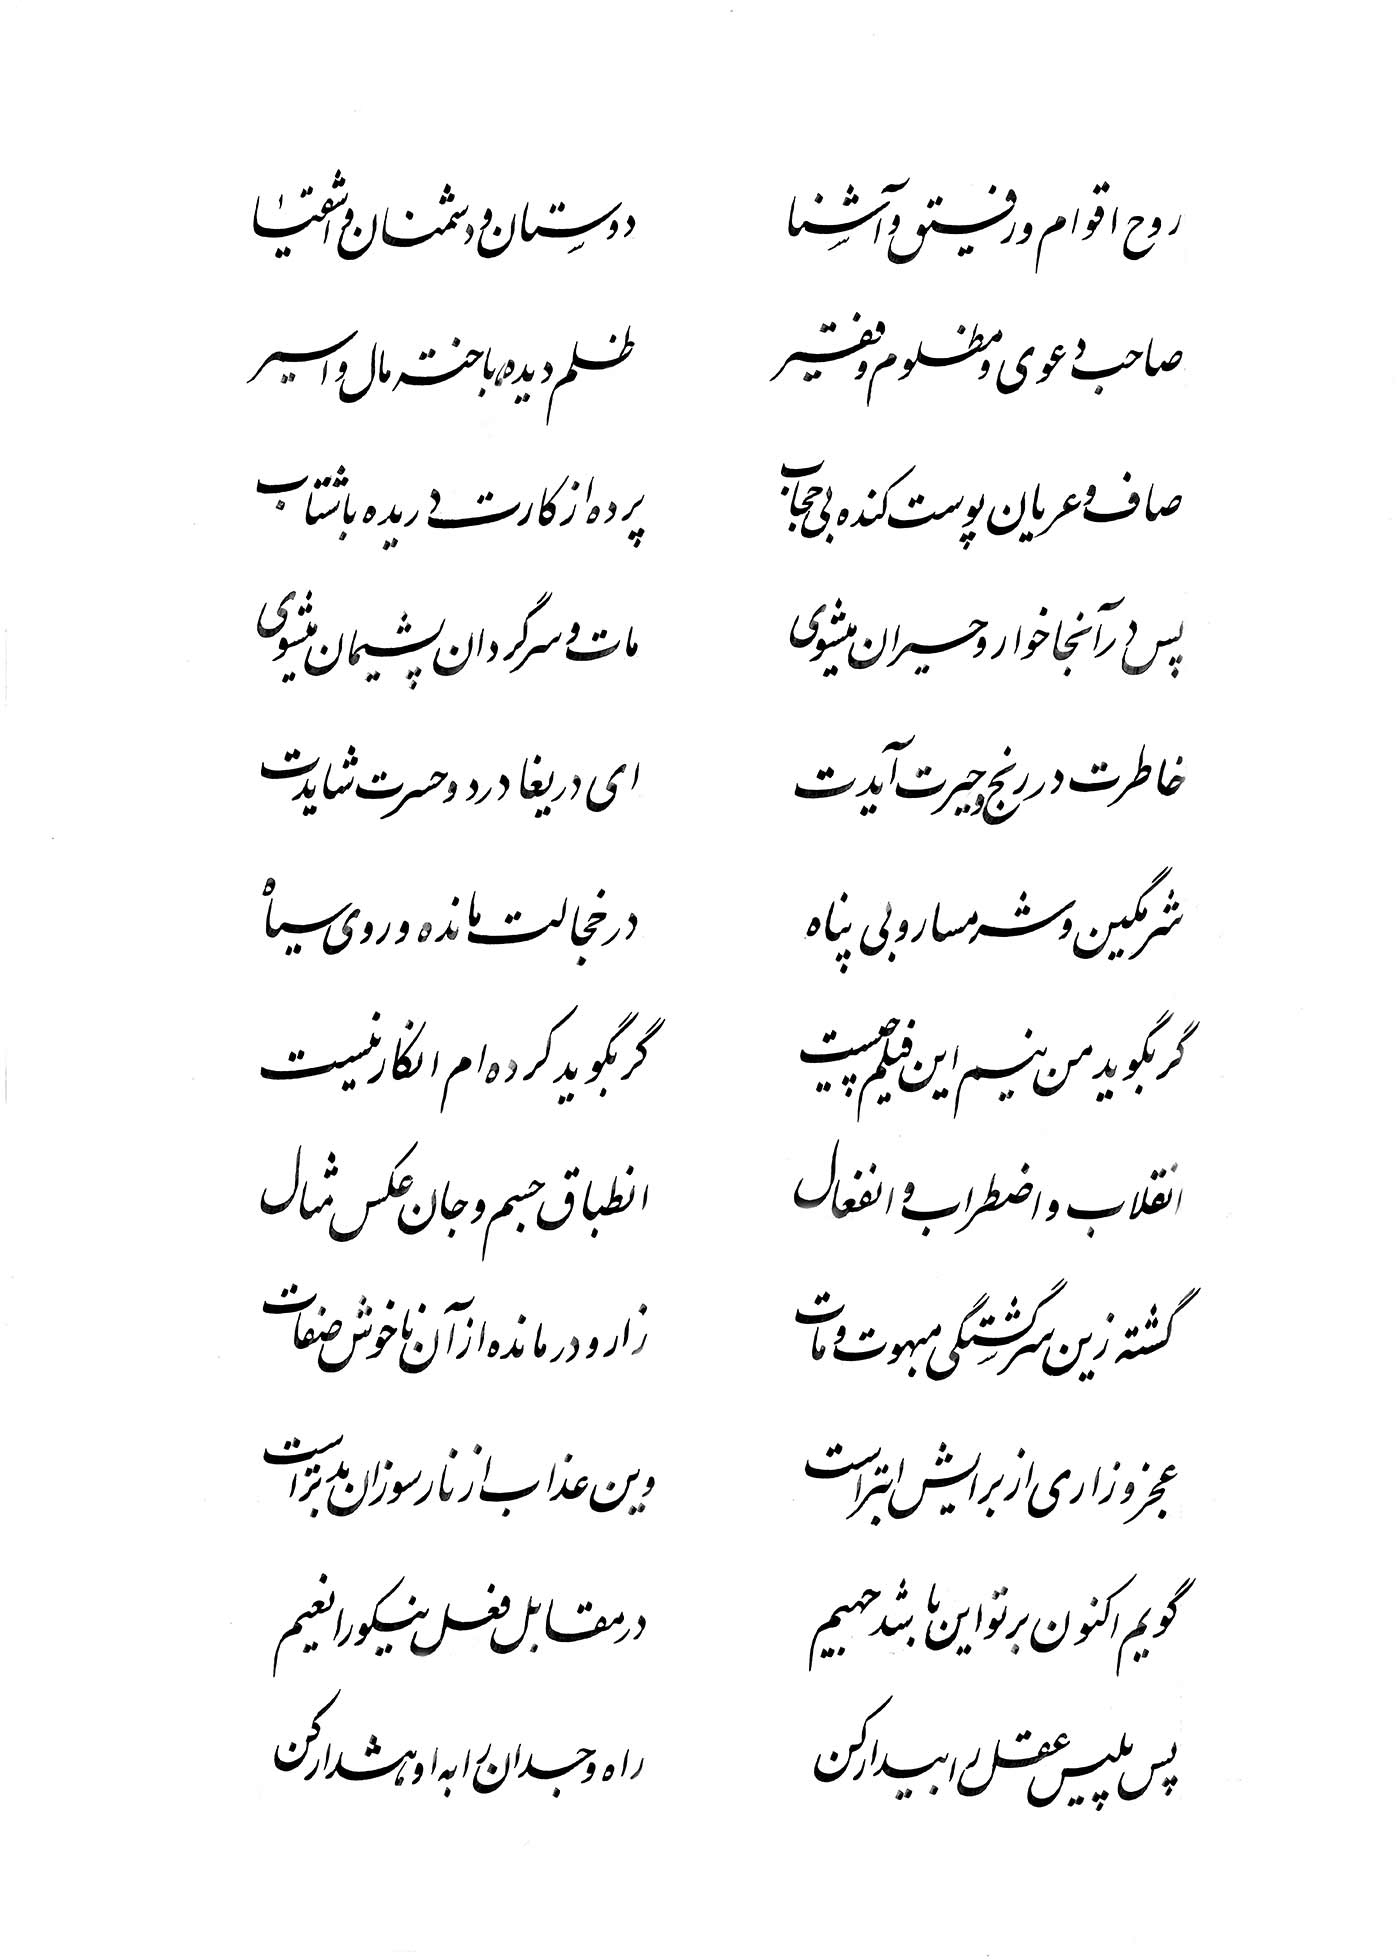 روح اقوام و رفیق و آشنا دوستان و دشمنان و اشقیا
صاحب دعوی و مظلوم و فقیر ظلم دیده باخته مال و اسیر
صاف و عریان پوست کنده بی حجاب پرده از کارت دریده با شتاب
پس در آنجا خوار و حیران میشوی مات و سرگردان پشیمان میشوی
خاطرت در رنج و حیرت آیدت ای دریغا درد و حسرت شایدت
شرمگین و شرمسار و بی پناه در خجالت مانده و روی سیاه
گر بگوید من نیم این فیلم چیست گر بگوید کرده ام انکار نیست
انقلاب و اضطراب و انفعال انطباق جسم و جان عکس مثال
گشته زین سرگشتگی مبهوت و مات زار و درمانده از آن ناخوش صفات
عجز و زاری از برایش ابتر است وین عذاب از نار سوزان بدتر است
گویم اکنون بر تو این باشد جهیم در مقابل فعل نیکو را نعیم
پس پلیس عقل را بیدار کن راه وجدان را به او هشدار کن